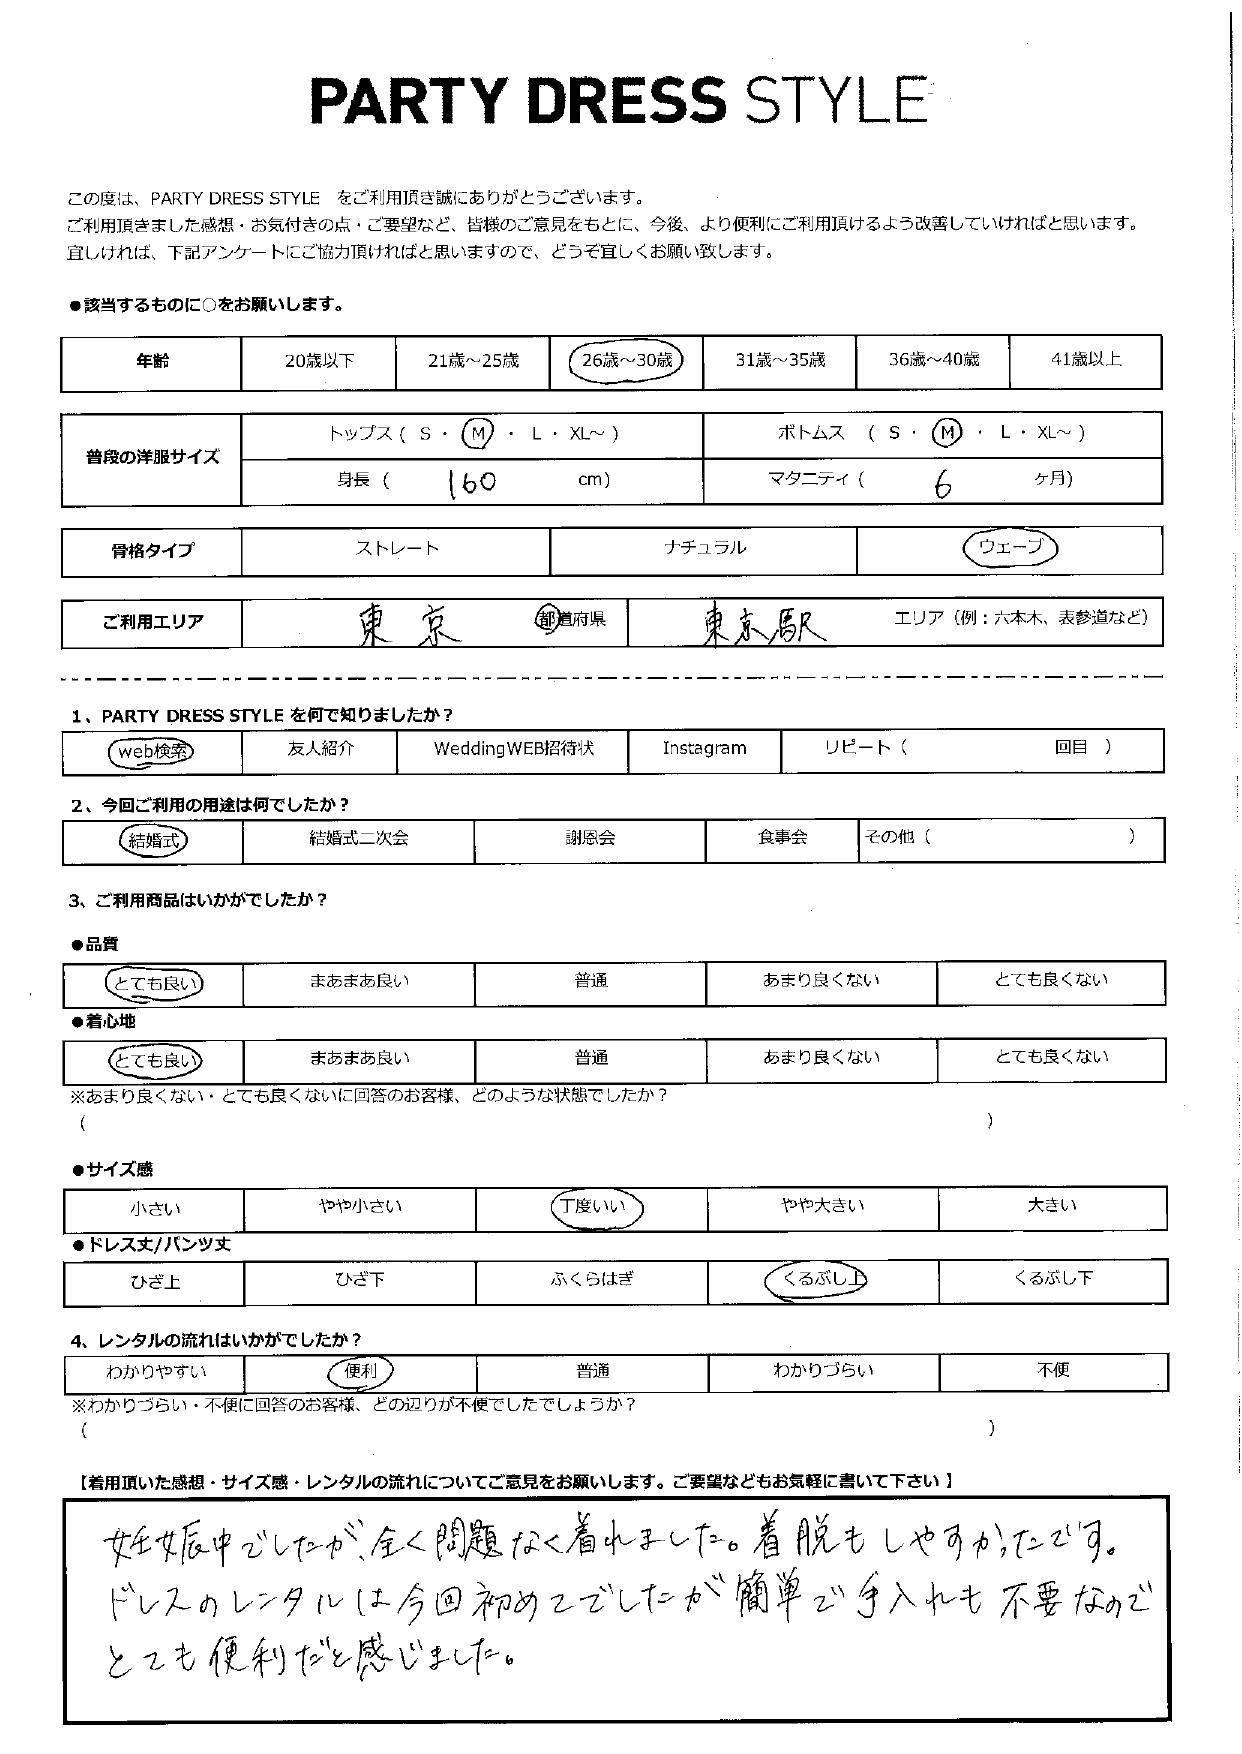 PARTY DRESS STYLE
この度は、PARTY DRESS STYLE をご利用頂き誠にありがとうございます。
ご利用頂きました感想・お気付きの点・ご要望など、皆様のご意見をもとに、今後、より便利にご利用頂けるよう改善していければと思います。
宜しければ、下記アンケートにご協力頂ければと思いますので、どうぞ宜しくお願い致します。
●該当するものに○をお願いします。
年齢 20歳以下 21歳～25歳 26歳～30歳 31歳～35歳 36歳～40歳 41歳以上
普段の洋服サイズ
トップス ( S ・ M ・ L ・ XL～ ) ボトムス ( S ・ M ・ L ・ XL～ )
身長 ( 160 cm) マタニティ ( 6 ケ月)
骨格タイプ ストレート ナチュラル ウェーブ
ご利用エリア 東京 都道府県 東京駅 エリア（例：六本木、表参道など）
1、PARTY DRESS STYLE を何で知りましたか？
web検索 友人紹介 WeddingWEB招待状 Instagram リピート ( 回目 )
2、今回ご利用の用途は何でしたか？
結婚式 結婚式二次会 謝恩会 食事会 その他 ( )
3、ご利用商品はいかがでしたか？
●品質
とても良い まあまあ良い 普通 あまり良くない とても良くない
●着心地
とても良い まあまあ良い 普通 あまり良くない とても良くない
※あまり良くない・とても良くないに回答のお客様、どのような状態でしたか？
( )
●サイズ感
小さい やや小さい 丁度いい やや大きい 大きい
●ドレス丈/パンツ丈
ひざ上 ひざ下 ふくらはぎ くるぶし上 くるぶし下
4、レンタルの流れはいかがでしたか？
わかりやすい 便利 普通 わかりづらい 不便
※わかりづらい・不便に回答のお客様、どの辺りが不便でしたでしょうか？
( )
【着用頂いた感想・サイズ感・レンタルの流れについてご意見をお願いします。ご要望などもお気軽に書いて下さい】
妊娠中でしたが、全く問題なく着れました。着脱もしやすかったです。
ドレスのレンタルは今回初めてでしたが簡単で手入れも不要なので
とても便利だと感じました。